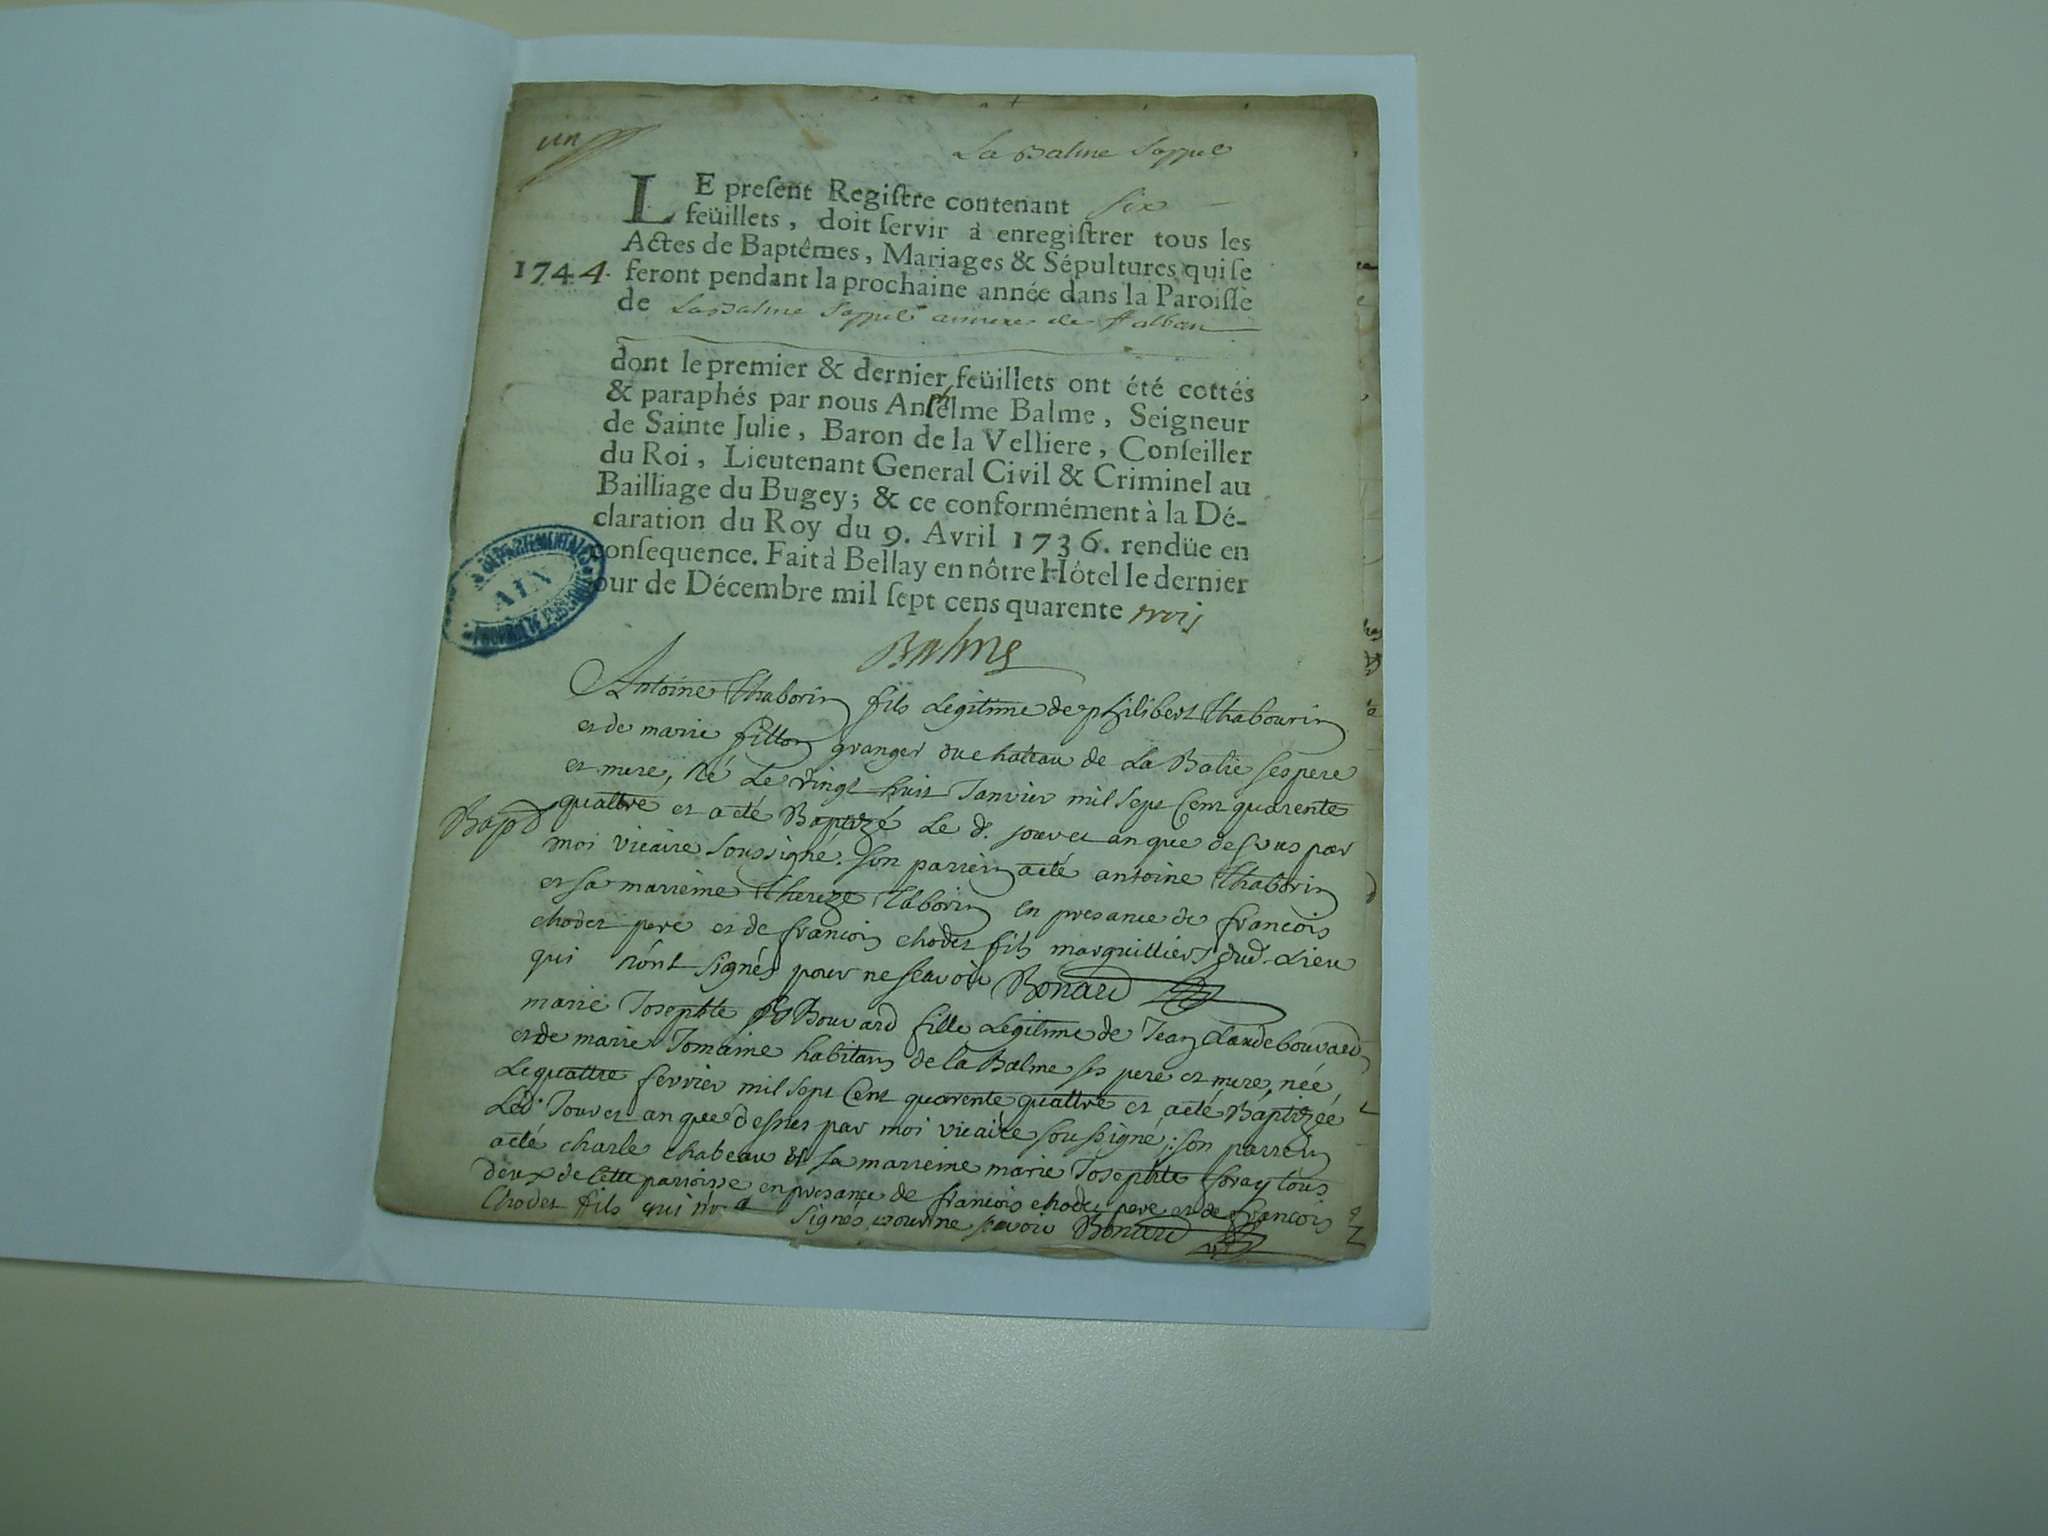 un
La Balme Sappel
LE preſent Regiſtre contenant six
feüillets, doit ſervir à enregiſtrer tous les
Actes de Baptêmes, Mariages & Sépultures qui ſe
1744. feront pendant la prochaine année dans la Paroiſſe
de La Balme Sappel annexe de St alban
dont le premier & dernier feüillets ont été cottés
& paraphés par nous Anthelme Balme, Seigneur
de Sainte Julie, Baron de la Velliere, Conſeiller
du Roi, Lieutenant General Civil & Criminel au
Bailliage du Bugey; & ce conformément à la Dé-
claration du Roy du 9. Avril 1736. rendüe en
conſequence. Fait à Bellay en nôtre Hôtel le dernier
jour de Décembre mil ſept cens quarente trois
DÉPARTEMENTALES
AIN
PROPRIÉTÉ PUBLIQUE
Balme
Antoine Thaborin fils Legitime de philibert Thabourin
et de marie fillon granger du chateau de La Batie ses pere
et mere, né Le vingt huit Janvier mil sept Cent quarente
Bapt quattre et a eté Baptizé Le d. jour et an que dessus par
moi vicaire soussigné. son parrein a eté antoine Thaborin
et sa marreine Thereze Taborin en presance de francois
chodet pere et de francois chodet fils marguilliers dud. Lieu
qui n'ont signés pour ne scavoir Bonard
marie Josephte Bouvard fille Legitime de Jean Claude bouvard
et de marie Jomaine habitans de la Balme ses pere et mere, née
Le quattre fevrier mil sept Cent quarente quattre et a eté Baptizée
Led. Jour et an que dessus par moi vicaire soussigné; son parrein
a eté charle chabeau et sa marreine marie Josephte Goray tous
deux de cette parroisse en presance de francois chodet pere et de francois
Chodet fils qui n'ont signés pour ne scavoir Bonard